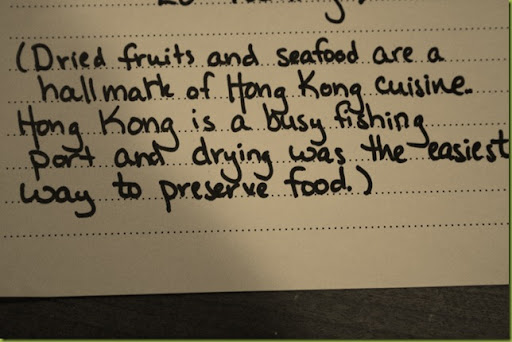 (Dried fruits and seafood are a
hallmark of Hong Kong cuisine.
Hong Kong is a busy fishing
port and drying was the easiest
way to preserve food.)